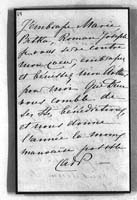 J'embrasse Marie
Pettha Roman Joseph
je vous serre contre
mon cœur, embrassez
et bénissez mon
pour moi. Que Dieu
vous comble de
ses bénédictions,
et nous donne
l'année la moins
mauvaise possible